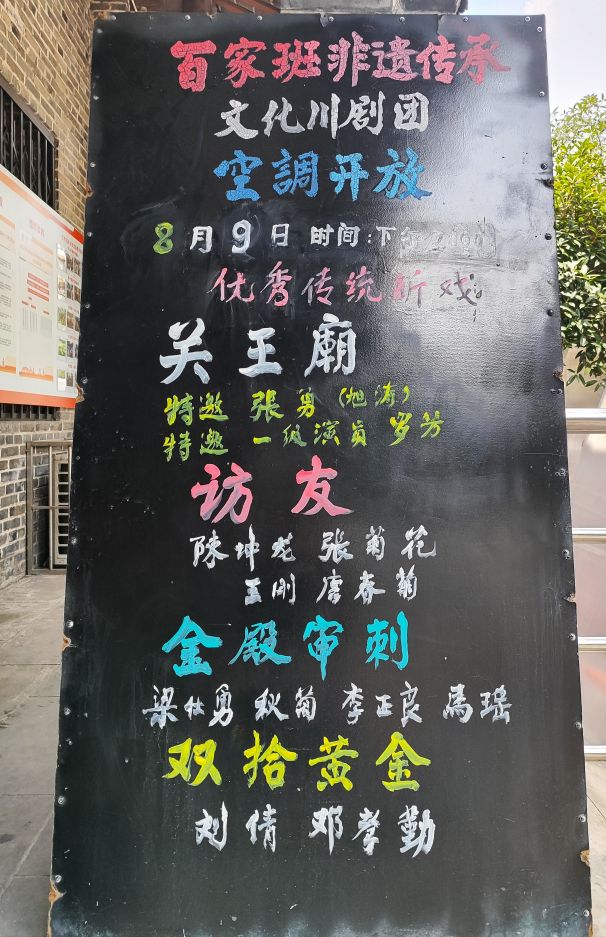 百家班非遗传承
文化川剧团
空調开放
8月9日 时间:下午2:00
优秀传统折戏
关王廟
特邀 张勇(旭涛)
特邀 一级演员 罗芳
访友
陳坤龙 张菊花
王刚 唐春菊
金殿审刺
梁仕勇 秋菊 李正良 馬瑶
双拾黄金
刘倩 邓孝勤